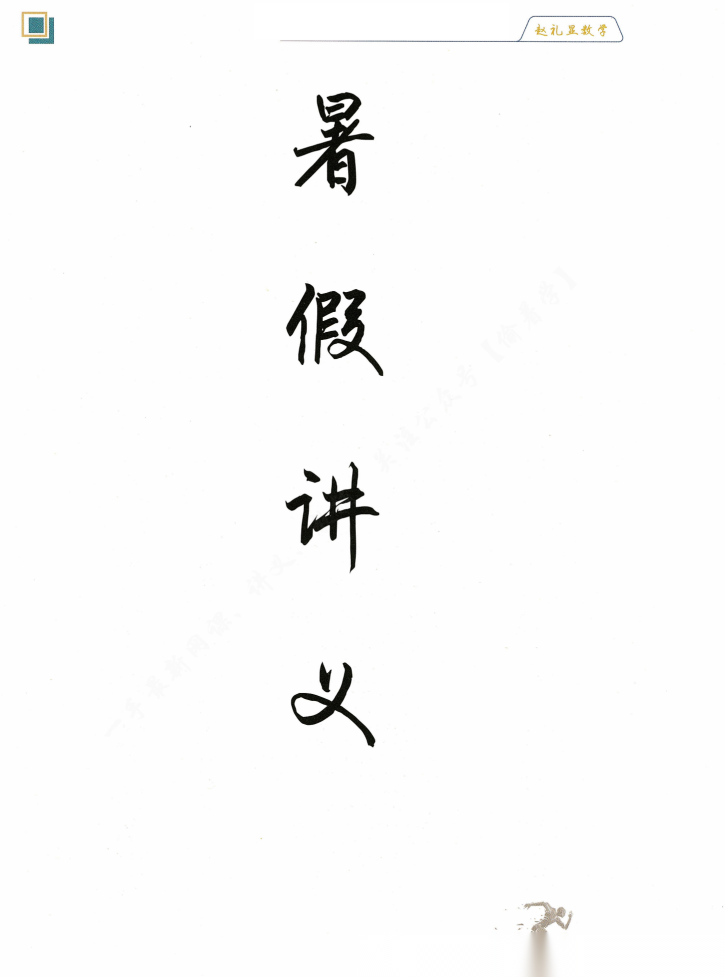 赵礼显数学
暑
假
讲
义